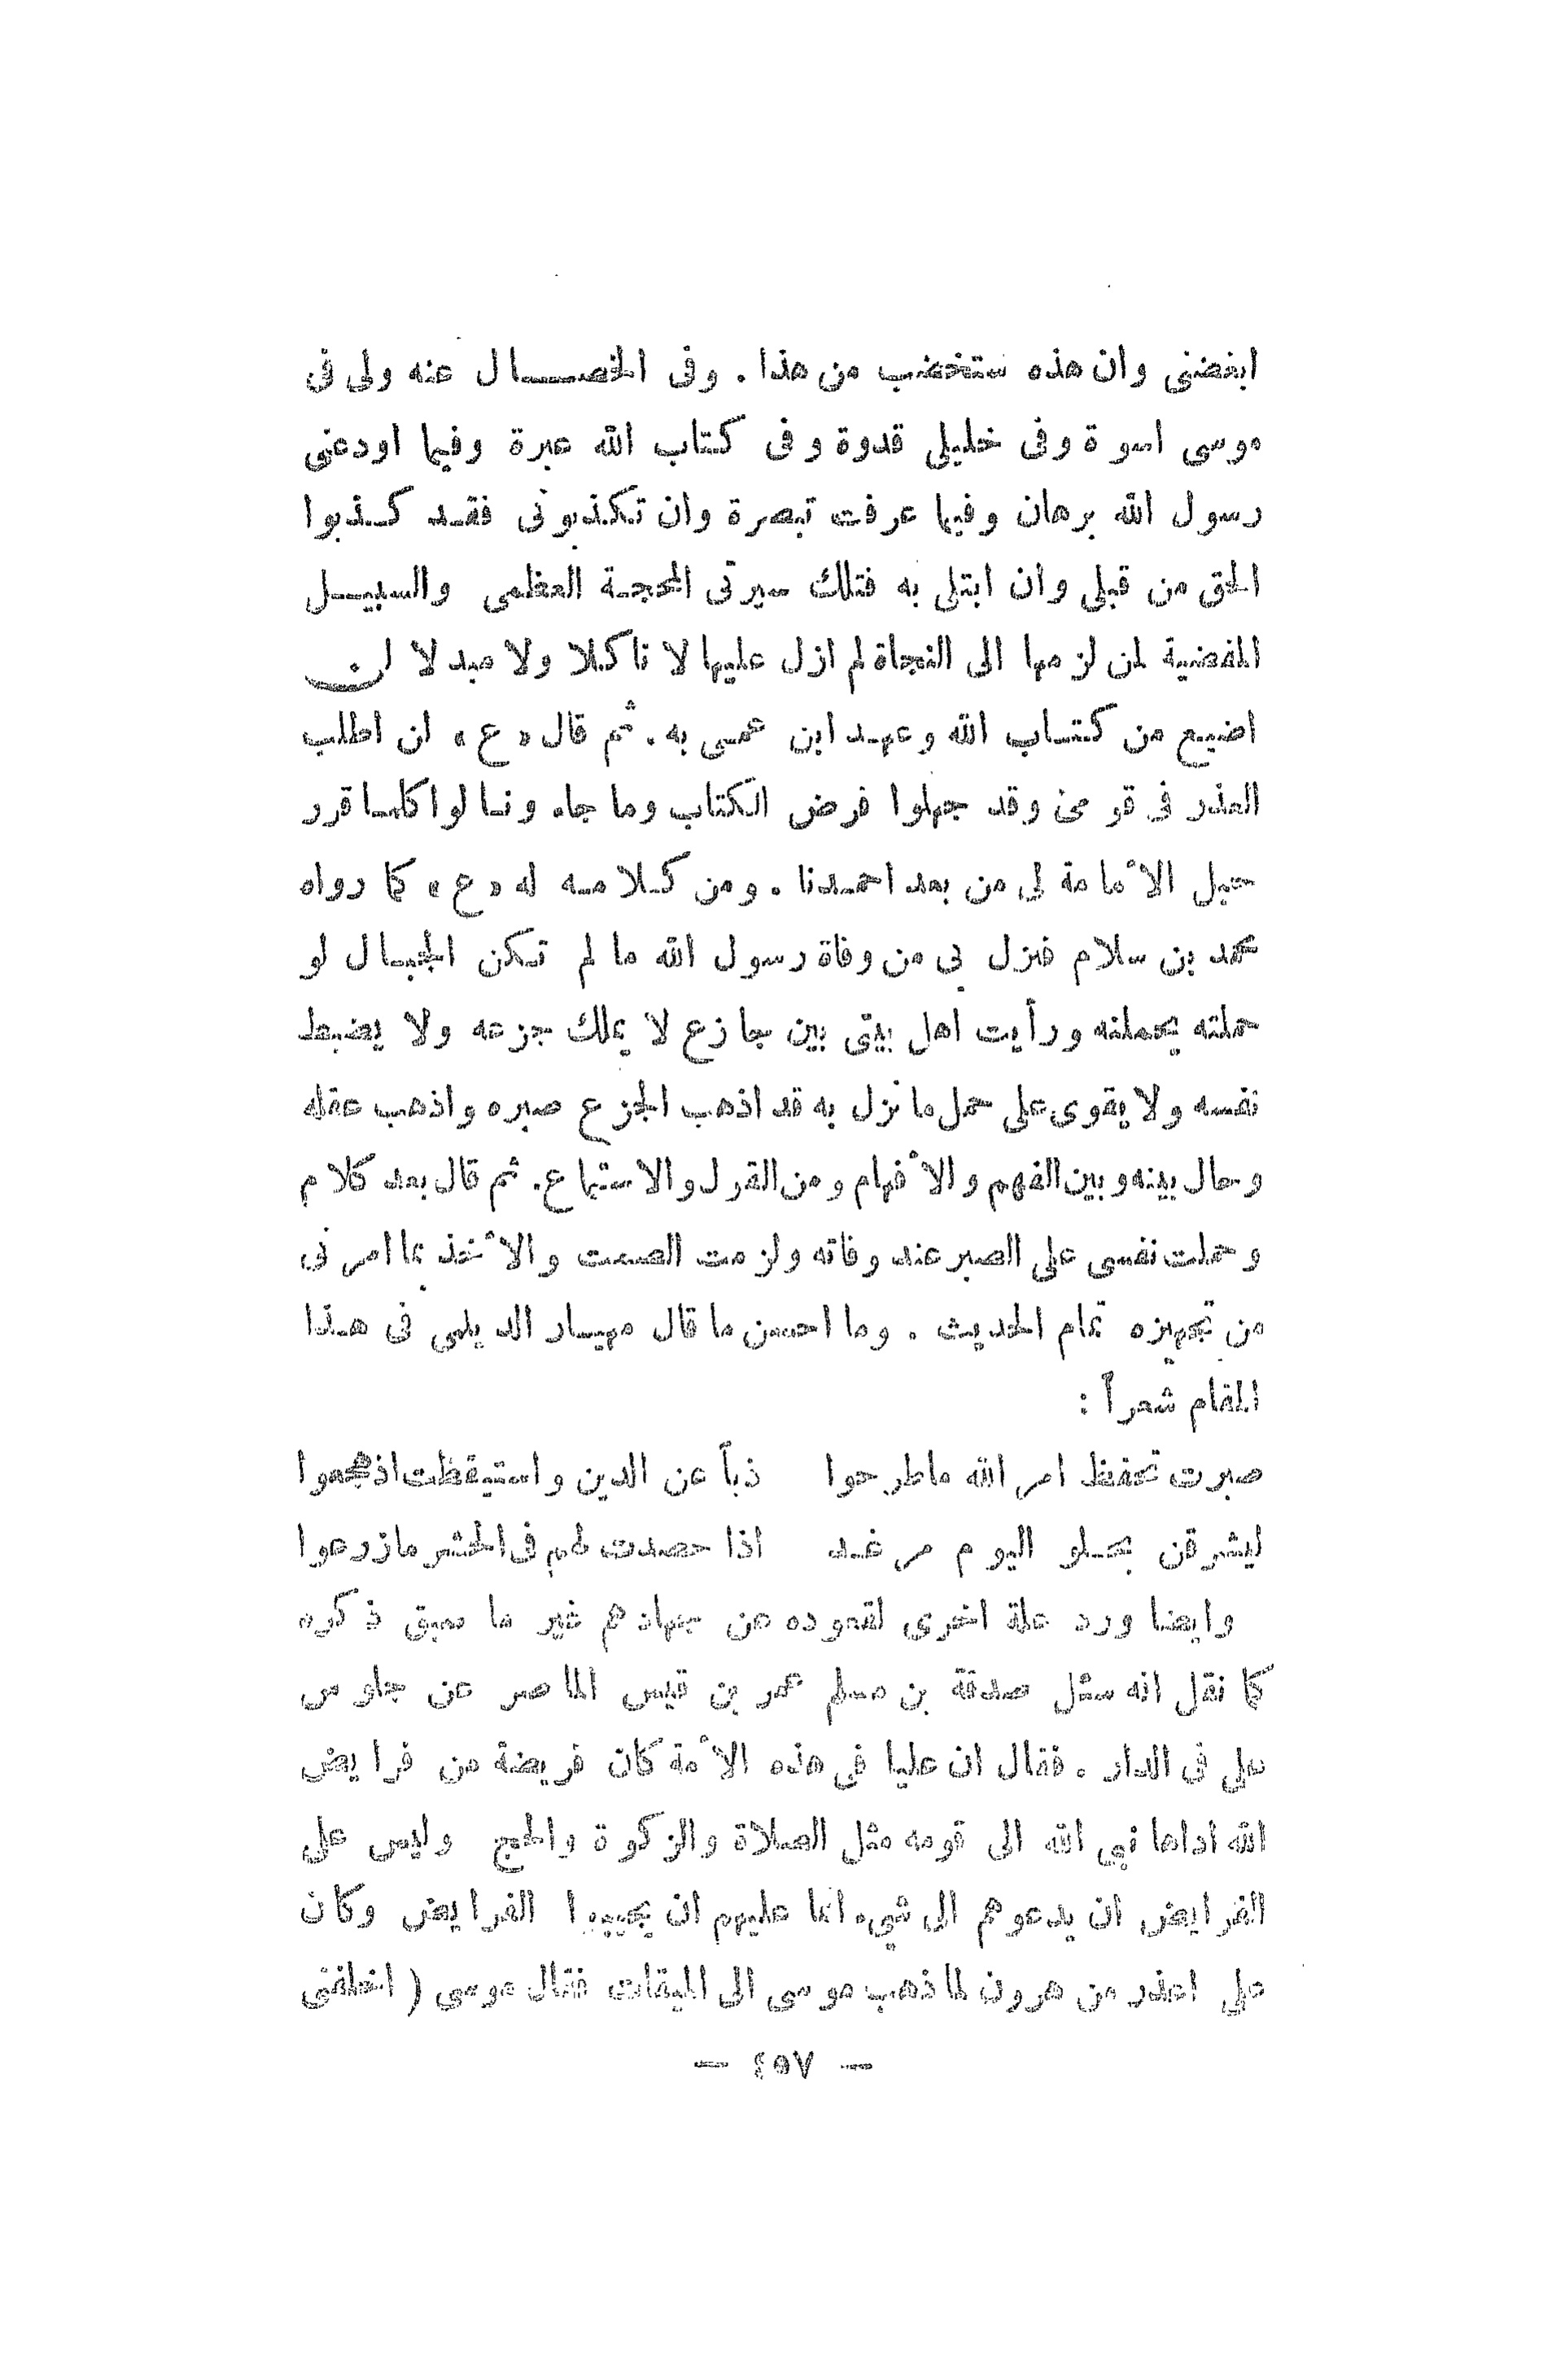 ابغضنى وان هذه ستخضب من هذا . وفى الخصال عنه ولى فى
موسى اسوة وفى خليلى قدوة وفى كتاب الله عبرة وفيما اودعنى
رسول الله برهان وفيما عرفت تبصرة وان تكذبونى فقد كذبوا
الحق من قبلى وان ابتلى به فتلك سيرتى المحجة العظمى والسبيل
المفضية لمن لزمها الى النجاة لم ازل عليها لا ناكلا ولا مبدلا لن
اضيع من كتاب الله وعهد ابن عمى به . ثم قال « ع » ان اطلب
العذر فى قومى وقد جهلوا فرض الكتاب وما جاء ونالوا كلما قرر
حبل الأمامة لى من بعد احمدنا . ومن كلامه له « ع » كما رواه
محمد بن سلام فنزل بى من وفاة رسول الله ما لم تكن الجبال لو
حملته يحملنه ورأيت اهل بيتى بين جازع لا يملك جزعه ولا يضبط
نفسه ولا يقوى على حمل ما نزل به قد اذهب الجزع صبره واذهب عقله
وحال بينه وبين الفهم والأفهام ومن القول والاستماع . ثم قال بعد كلام
وحملت نفسى على الصبر عند وفاته ولزمت الصمت والأخذ بما امرنى
من تجهيزه تمام الحديث . وما احسن ما قال مهيار الديلمى فى هذا
المقام شعراً :
صبرت تحفظ امر الله ماطرحوا ذباً عن الدين واستيقظت اذ هجموا
ليشرقن بحلو اليوم مر غد اذا حصدت لهم فى الحشر مازرعوا
وايضا ورد علة اخرى لقعوده عن جهادهم غير ما سبق ذكره
كما نقل انه سئل صدقة بن مسلم عمر بن قيس الماصر عن جلوس
على فى الدار . فقال ان عليا فى هذه الأمة كان فريضة من فرايض
الله اداها نبي الله الى قومه مثل الصلاة والزكوة والحج وليس على
الفرايض ان يدعوهم الى شيء انما عليهم ان يجيبوا الفرايض وكان
على اعذر من هرون لما ذهب موسى الى الميقات فقال موسى ( اخلفنى
— ٤٥٧ —